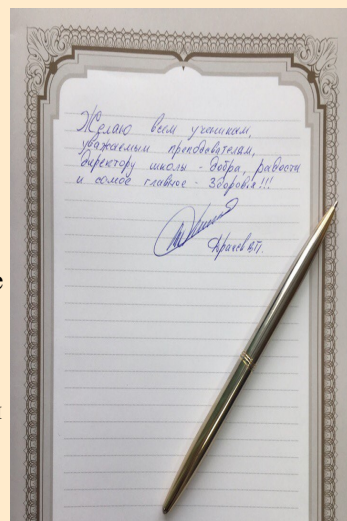 Желаю всем ученикам,
уважаемым преподавателям,
директору школы - добра, радости
и самое главное - Здоровья!!!